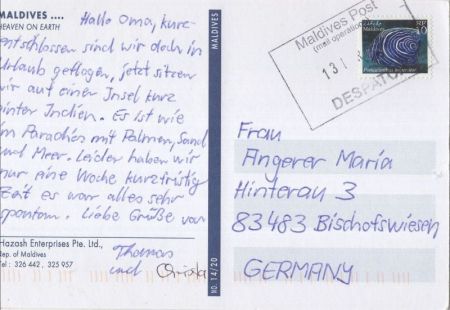 MALDIVES ....
HEAVEN ON EARTH
Hallo Oma, kurz-
entschlossen sind wir doch in
Urlaub geflogen, jetzt sitzen
wir auf einer Insel kurz
hinter Indien. Es ist wie
im Paradies mit Palmen, Sand
und Meer. Leider haben wir
nur eine Woche kurzfristig
Zeit es war alles sehr
spontan. Liebe Grüße von
Thomas
und Christa
Hazosh Enterprises Pte. Ltd.,
Rep. of Maldives
Tel : 326 442, 325 957
MALDIVES
NO. 14/20
Maldives Post
DESPATCH
Maldives
Frau
Angerer Maria
Hinterau 3
83483 Bischofswiesen
GERMANY